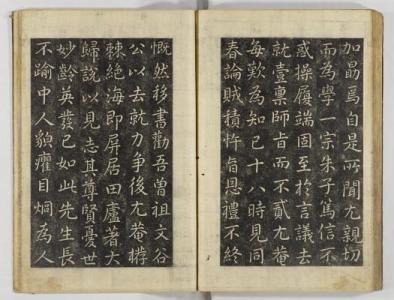 加勗焉自是所聞尤親切
而爲學一宗朱子篤信不
惑操履端固至於言議去
就壹禀師旨而不貳尤菴
每歎爲知己十八時見同
春論賊積忤旨恩禮不終
慨然移書勸吾曾祖文谷
公以去就力爭後尤菴栫
棘絶海即屏居田廬著大
歸說以見志其尊賢憂世
妙齡英發已如此先生長
不踰中人貌癯目烱爲人